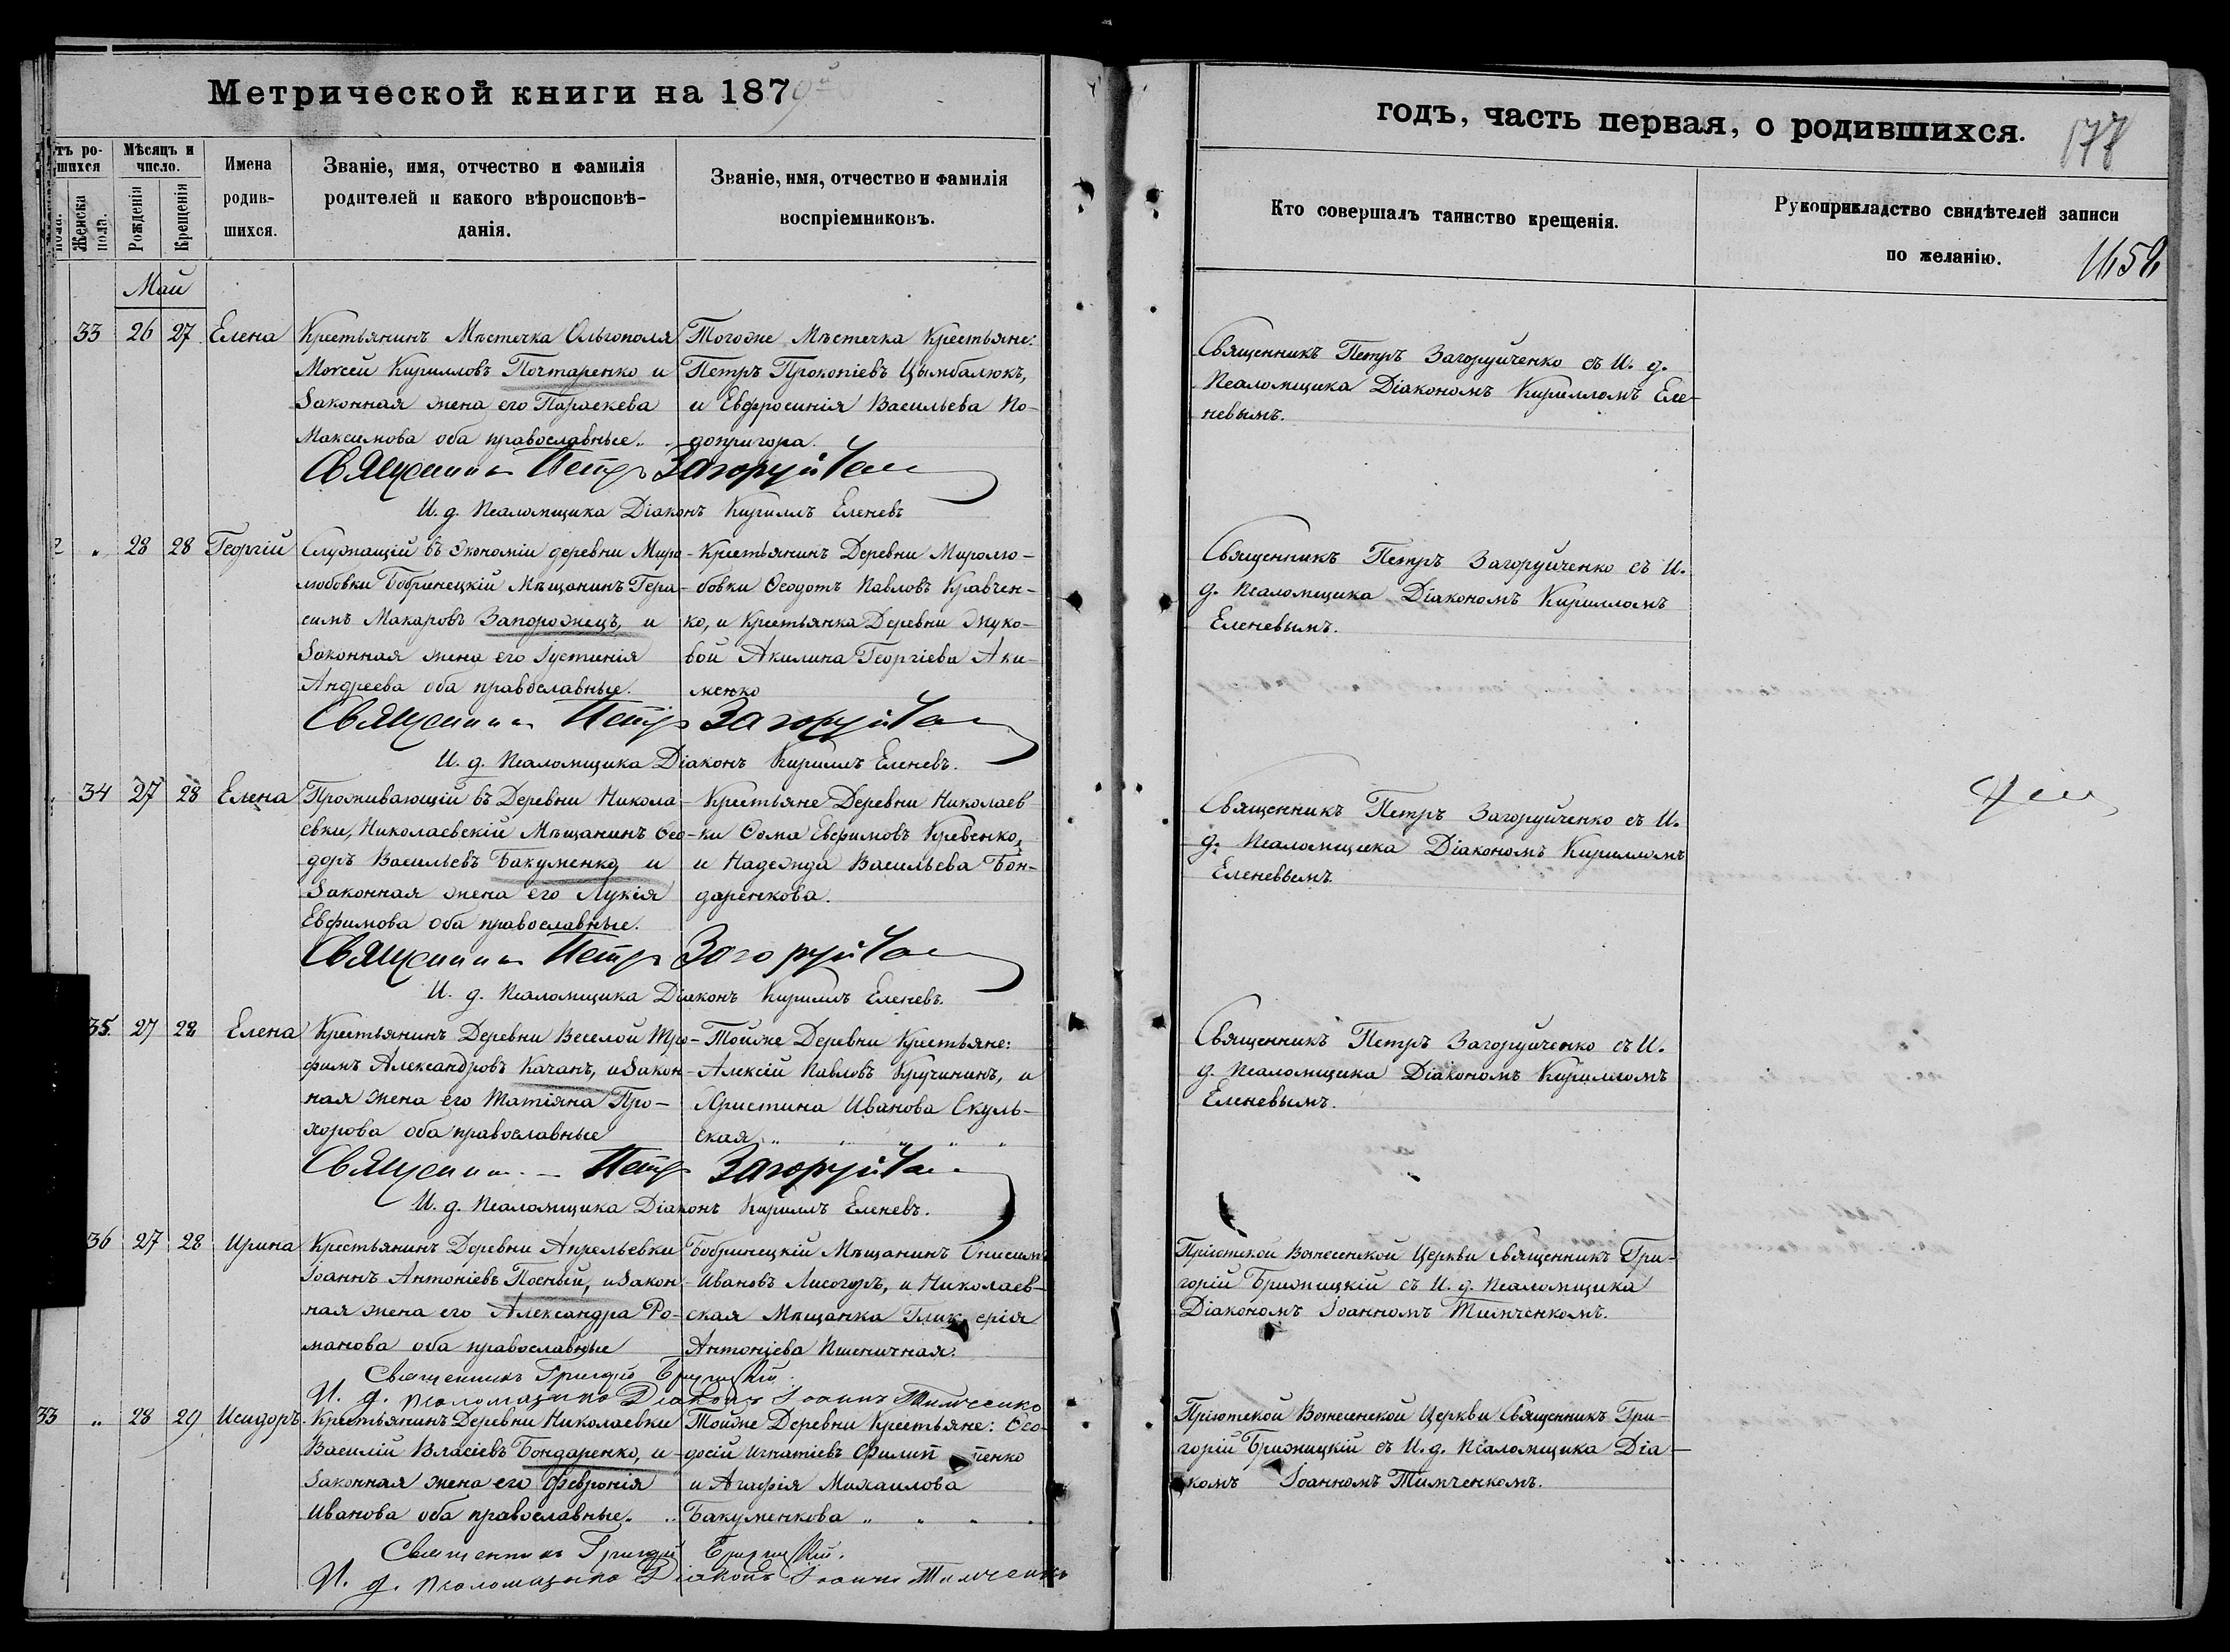 Метрической книги на 1879й
тъ ро-
шихся
Женска
пола.
Мѣсяцъ и
число.
Рожденія
Крещенія
Имена
родив-
шихся.
Званіе, имя, отчество и фамилія
родителей и какого вѣроисповѣ-
данія.
Званіе, имя, отчество и фамилія
воспріемниковъ.
Май
33 26 27 Елена
Крестьянинъ Мѣстечка Ольгополя
Моѵсей Кирилловъ Почтаренко и
Законная жена его Параскева
Максимова оба православные.
Тогоже Мѣстечка Крестьяне:
Петръ Прокопіевъ Цымбалюкъ,
и Евфросинія Васильева По-
допригора.
Священникъ Петръ Загоруйченко
И. д. Псаломщика Діаконъ Кириллъ Еленевъ
2 „ 28 28 Георгій
Служащій въ Экономіи деревни Миро-
любовки Бобринецкій Мѣщанинъ Гера-
симъ Макаровъ Запорожецъ, и
Законная жена его Іустинія
Андреева оба православные.
Крестьянинъ Деревни Миролю-
бовки Ѳеодотъ Павловъ Кравчен-
ко, и Крестьянка Деревни Жуко-
вой Акилина Георгіева Аки-
менко
Священникъ Петръ Загоруйченко
И. д. Псаломщика Діаконъ Кириллъ Еленевъ.
34 27 28 Елена
Проживающій въ Деревни Никола-
евки, Николаевскій Мѣщанинъ Ѳео-
доръ Васильевъ Бакуменко и
Законная жена его Лукія
Евфимова оба православные.
Крестьяне Деревни Николаев-
ки Ѳома Евфимовъ Кривенко,
и Надежда Васильева Бон-
даренкова.
Священникъ Петръ Загоруйченко
И. д. Псаломщика Діаконъ Кириллъ Еленевъ.
35 27 28 Елена
Крестьянинъ Деревни Веселой Тро-
фимъ Александровъ Качанъ, и Закон-
ная жена его Татіяна Про-
хорова оба православные
Тойже Деревни Крестьяне:
Алексій Павловъ Кручининъ, и
Христина Иванова Скуль-
ская „ „ „ „
Священникъ Петръ Загоруйченко
И. д. Псаломщика Діаконъ Кириллъ Еленевъ.
36 27 28 Ирина
Крестьянинъ Деревни Апрельевки
Іоаннъ Антоніевъ Посный, и Закон-
ная жена его Александра Ро-
манова оба православные
Бобринецкій Мѣщанинъ Онисимъ
Ивановъ Лисогоръ, и Николаев-
ская Мѣщанка Гликерія
Антоніева Пшеничная.
Священникъ Григорій Брижицкій.
И. д. псаломщика Діаконъ Іоаннъ Тимченко
33 „ 28 29 Исидоръ.
Крестьянинъ Деревни Николаевки
Василій Власіевъ Бондаренко, и
Законная жена его Февронія
Иванова оба православные.
Тойже Деревни Крестьяне: Ѳео-
досій Игнатіевъ Филип пенко
и Агафія Михаилова
Бакуменкова „ „ „
Священникъ Григорій Брижицкій.
И. д. псаломщика Діаконъ Іоаннъ Тимченко
годъ, часть первая, о родившихся.
177
Кто совершалъ таинство крещенія.
Рукоприкладство свидѣтелей записи
по желанію.
Священникъ Петръ Загоруйченко съ И. д.
Псаломщика Діакономъ Кирилломъ Еле-
невымъ.
Священникъ Петръ Загоруйченко съ И.
д. Псаломщика Діакономъ Кирилломъ
Еленевымъ.
Священникъ Петръ Загоруйченко съ И.
д. Псаломщика Діакономъ Кирилломъ
Еленевымъ.
Священникъ Петръ Загоруйченко съ И.
д. Псаломщика Діакономъ Кирилломъ
Еленевымъ.
Пріютской Вознесенской Церкви Священникъ Гри-
горій Брижицкій съ И. д. Псаломщика
Діакономъ Іоанномъ Тимченкомъ.
Пріютской Вознесенской Церкви Священникъ Гри-
горій Брижицкій съ И. д. Псаломщика Діа-
комъ Іоанномъ Тимченкомъ.